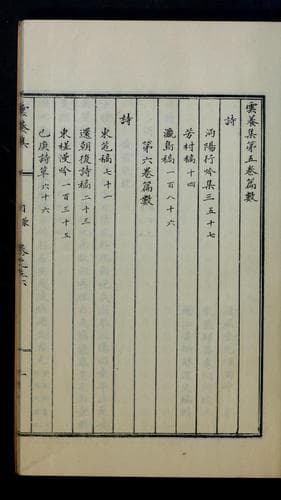 雲養集第五卷篇數
詩
沔陽行吟集三五十七
芳村稿十四
瀛島稿一百八十六
第六卷篇數
詩
東花稿七十一
還朝後詩稿二十三
東槎漫吟一百三十五
己庚詩草六十六
雲養集
目錄
卷之五六
一